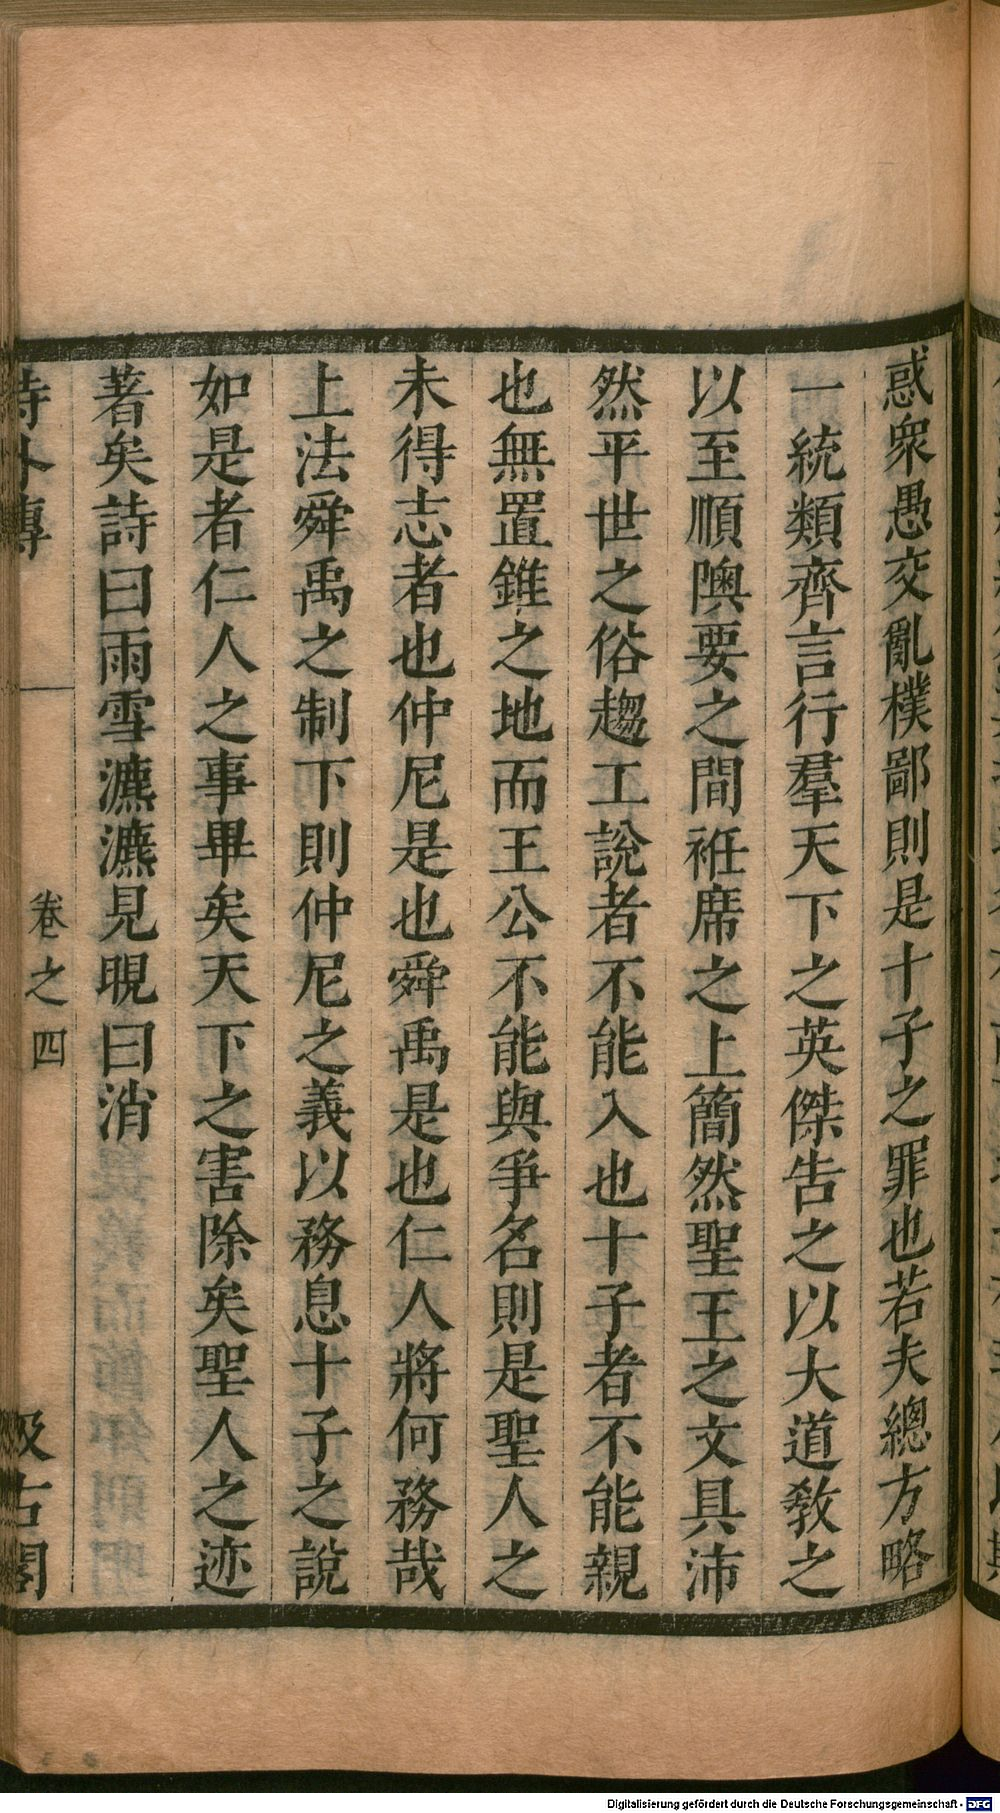 惑衆愚交亂樸鄙則是十子之罪也若夫總方略
一統類齊言行羣天下之英傑告之以大道教之
以至順隩要之間袵席之上簡然聖王之文具沛
然平世之俗趨工說者不能入也十子者不能親
也無置錐之地而王公不能與爭名則是聖人之
未得志者也仲尼是也舜禹是也仁人將何務哉
上法舜禹之制下則仲尼之義以務息十子之說
如是者仁人之事畢矣天下之害除矣聖人之迹
著矣詩曰雨雪瀌瀌見晛曰消
詩外傳 卷之四 汲古閣
Digitalisierung gefördert durch die Deutsche Forschungsgemeinschaft - DFG